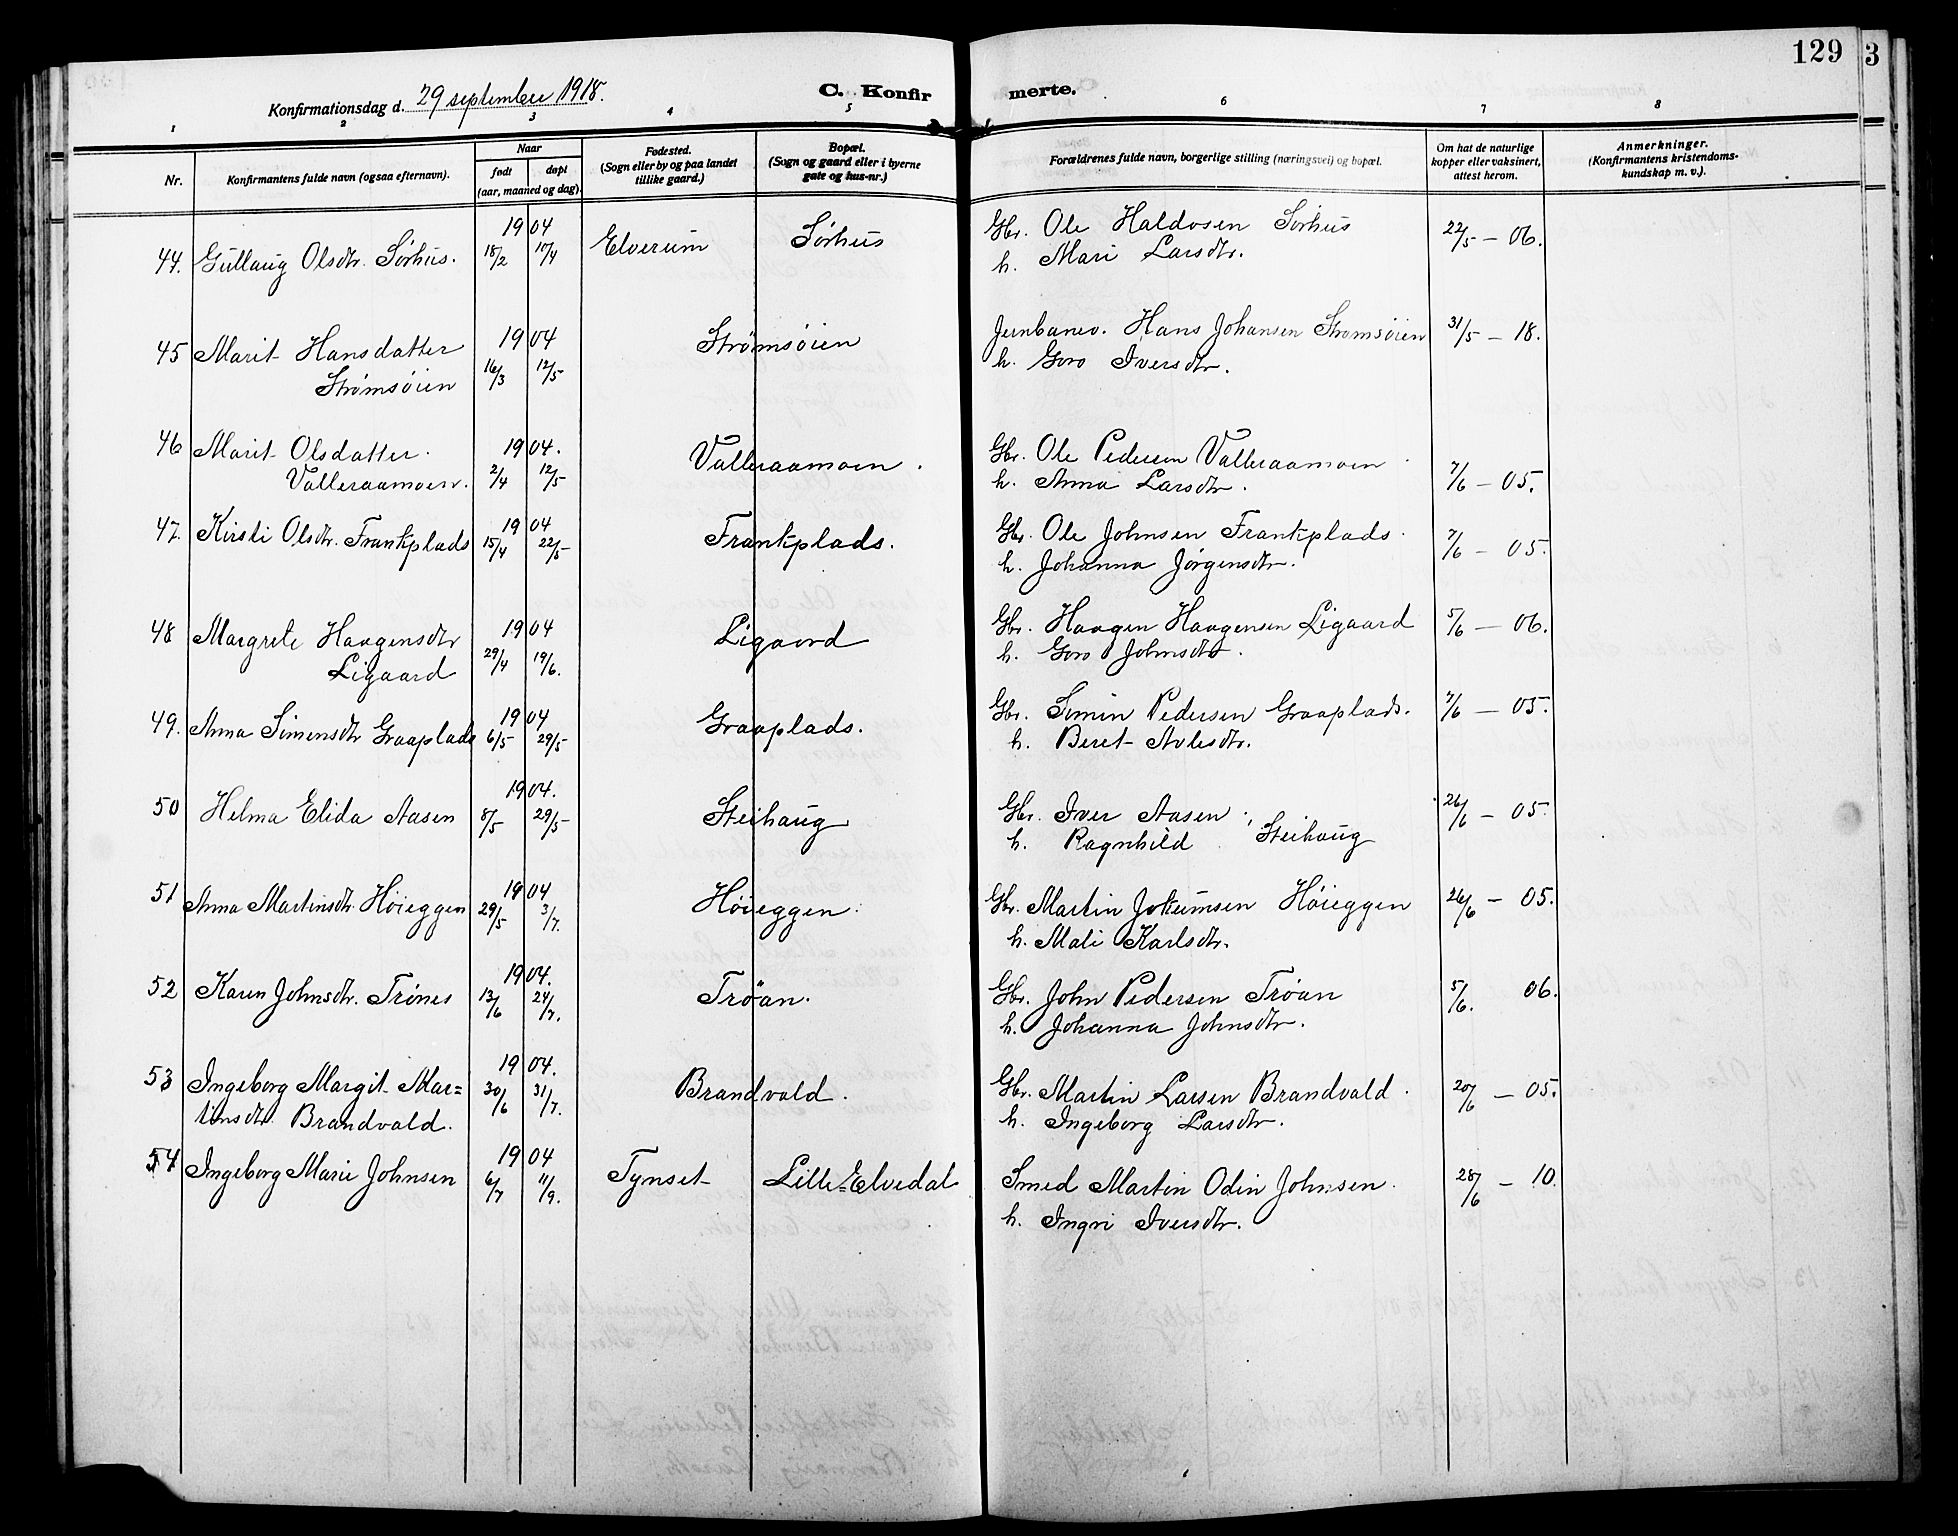 129
3
Konfirmationsdag d. 29 september 1918.
C. Konfir merte.
1 2 3 4 5 6 7 8
Nr.
Konfirmantens fulde navn (ogsaa efternavn).
Naar
født
døpt
(aar, maaned og dag).
Fødested.
(Sogn eller by og paa landet
tillike gaard.)
Bopæl.
(Sogn og gaard eller i byerne
gate og hus-nr.)
Forældrenes fulde navn, borgerlige stilling (næringsvei) og bopæl.
Om hat de naturlige
kopper eller vaksinert,
attest herom.
Anmerkninger.
(Konfirmantens kristendoms-
kundskap m. v.).
1904
44. Gullaug Olsdtr. Sørhus. 18/2 17/4 Elverum Sørhus Gbr. Ole Haldosen Sørhus 22/5 - 06.
h. Mari Larsdtr.
45 Marit Hansdatter 1904 Strømsøien Jernbanev. Hans Johansen Strømsøien 31/5 - 18.
Strømsøien 16/3 12/5 h. Goro Iversdtr.
46 Marit Olsdatter 1904. Valleraamoen. Gbr. Ole Pedersen Valleraamoen
Valleraamoen. 2/4 12/5 h. Anna Larsdtr. 7/6 - 05.
1904
47. Kirsti Olsdtr. Frankplads 15/4 22/5 Frankplads. Gbr. Ole Johnsen Frankplads. 7/6 - 05.
h. Johanna Jørgensdtr.
48 Margrete Haagensdtr 1904 Ligaard Gbr. Haagen Haagensen Ligaard 5/6 - 06.
Ligaard 29/4 19/6. h. Goro Johnsdtr.
1904
49. Anna Simensdtr Graaplads 6/5 29/5 Graaplads. Gbr. Simen Pedersen Graaplads. 7/6 - 05.
h. Beret Avlesdtr.
1904.
50 Helma Elida Aasen 8/5 29/5 Steihaug Gbr. Iver Aasen 26/6 - 05.
h. Ragnhild Steihaug
1904
51 Anna Martinsdtr. Høieggen 29/5 3/7. Høieggen. Gbr. Martin Jokumsen Høieggen 26/6 - 05.
h. Mali Karlsdtr.
1904.
52 Karen Johnsdtr. Trønes 13/6 24/7. Trøan. Gbr. John Pedersen Trøan 5/6. 06.
h. Johanna Johnsdtr.
1904.
53 Ingeborg Margit Mar= 30/6 31/7. Brandvald. Gbr. Martin Larsen Brandvald. 20/6 - 05.
tinsdtr. Brandvald. h. Ingeborg Larsdtr.
1904
54 Ingeborg Marie Johnsen 6/7 11/9. Tynset Lille-Elvedal Smed Martin Odin Johnsen. 28/6 - 10.
h. Ingri Iversdtr.